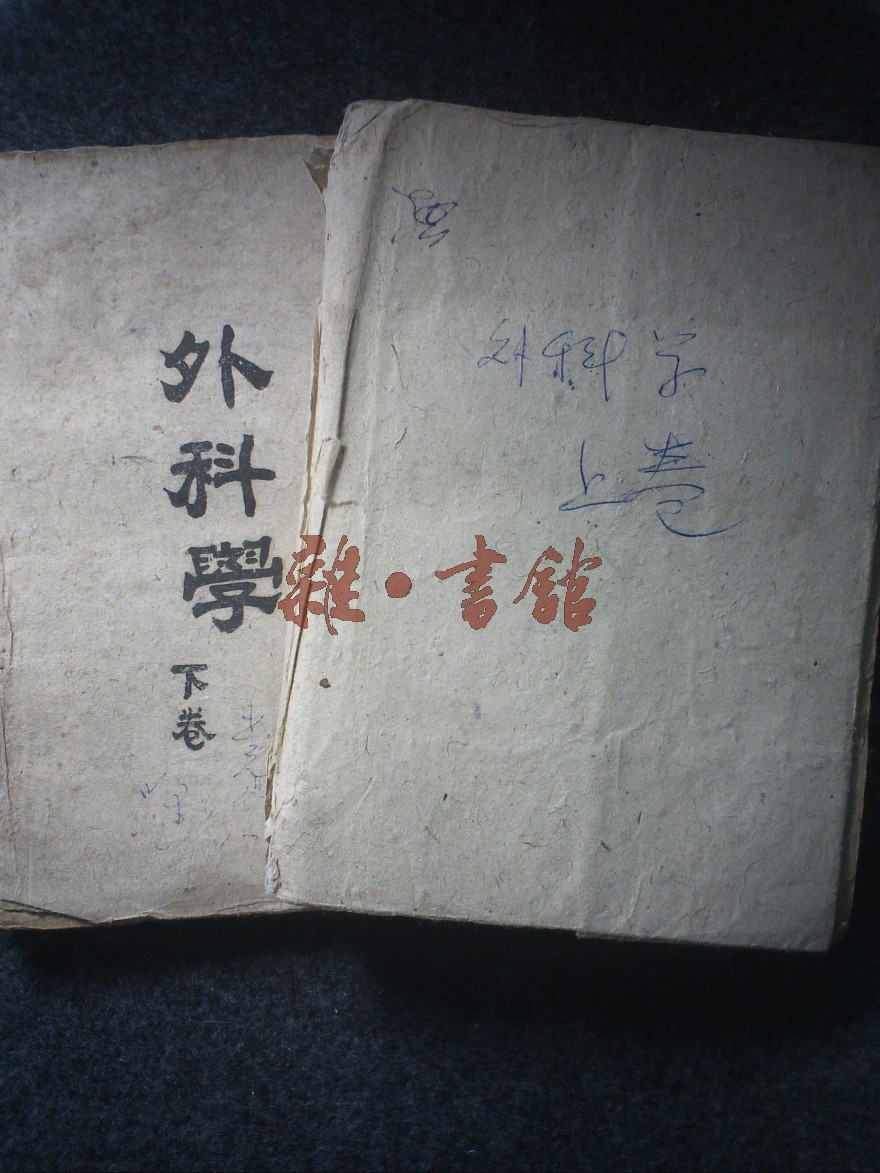 外科學
下卷
外科学
上卷
雜·書館